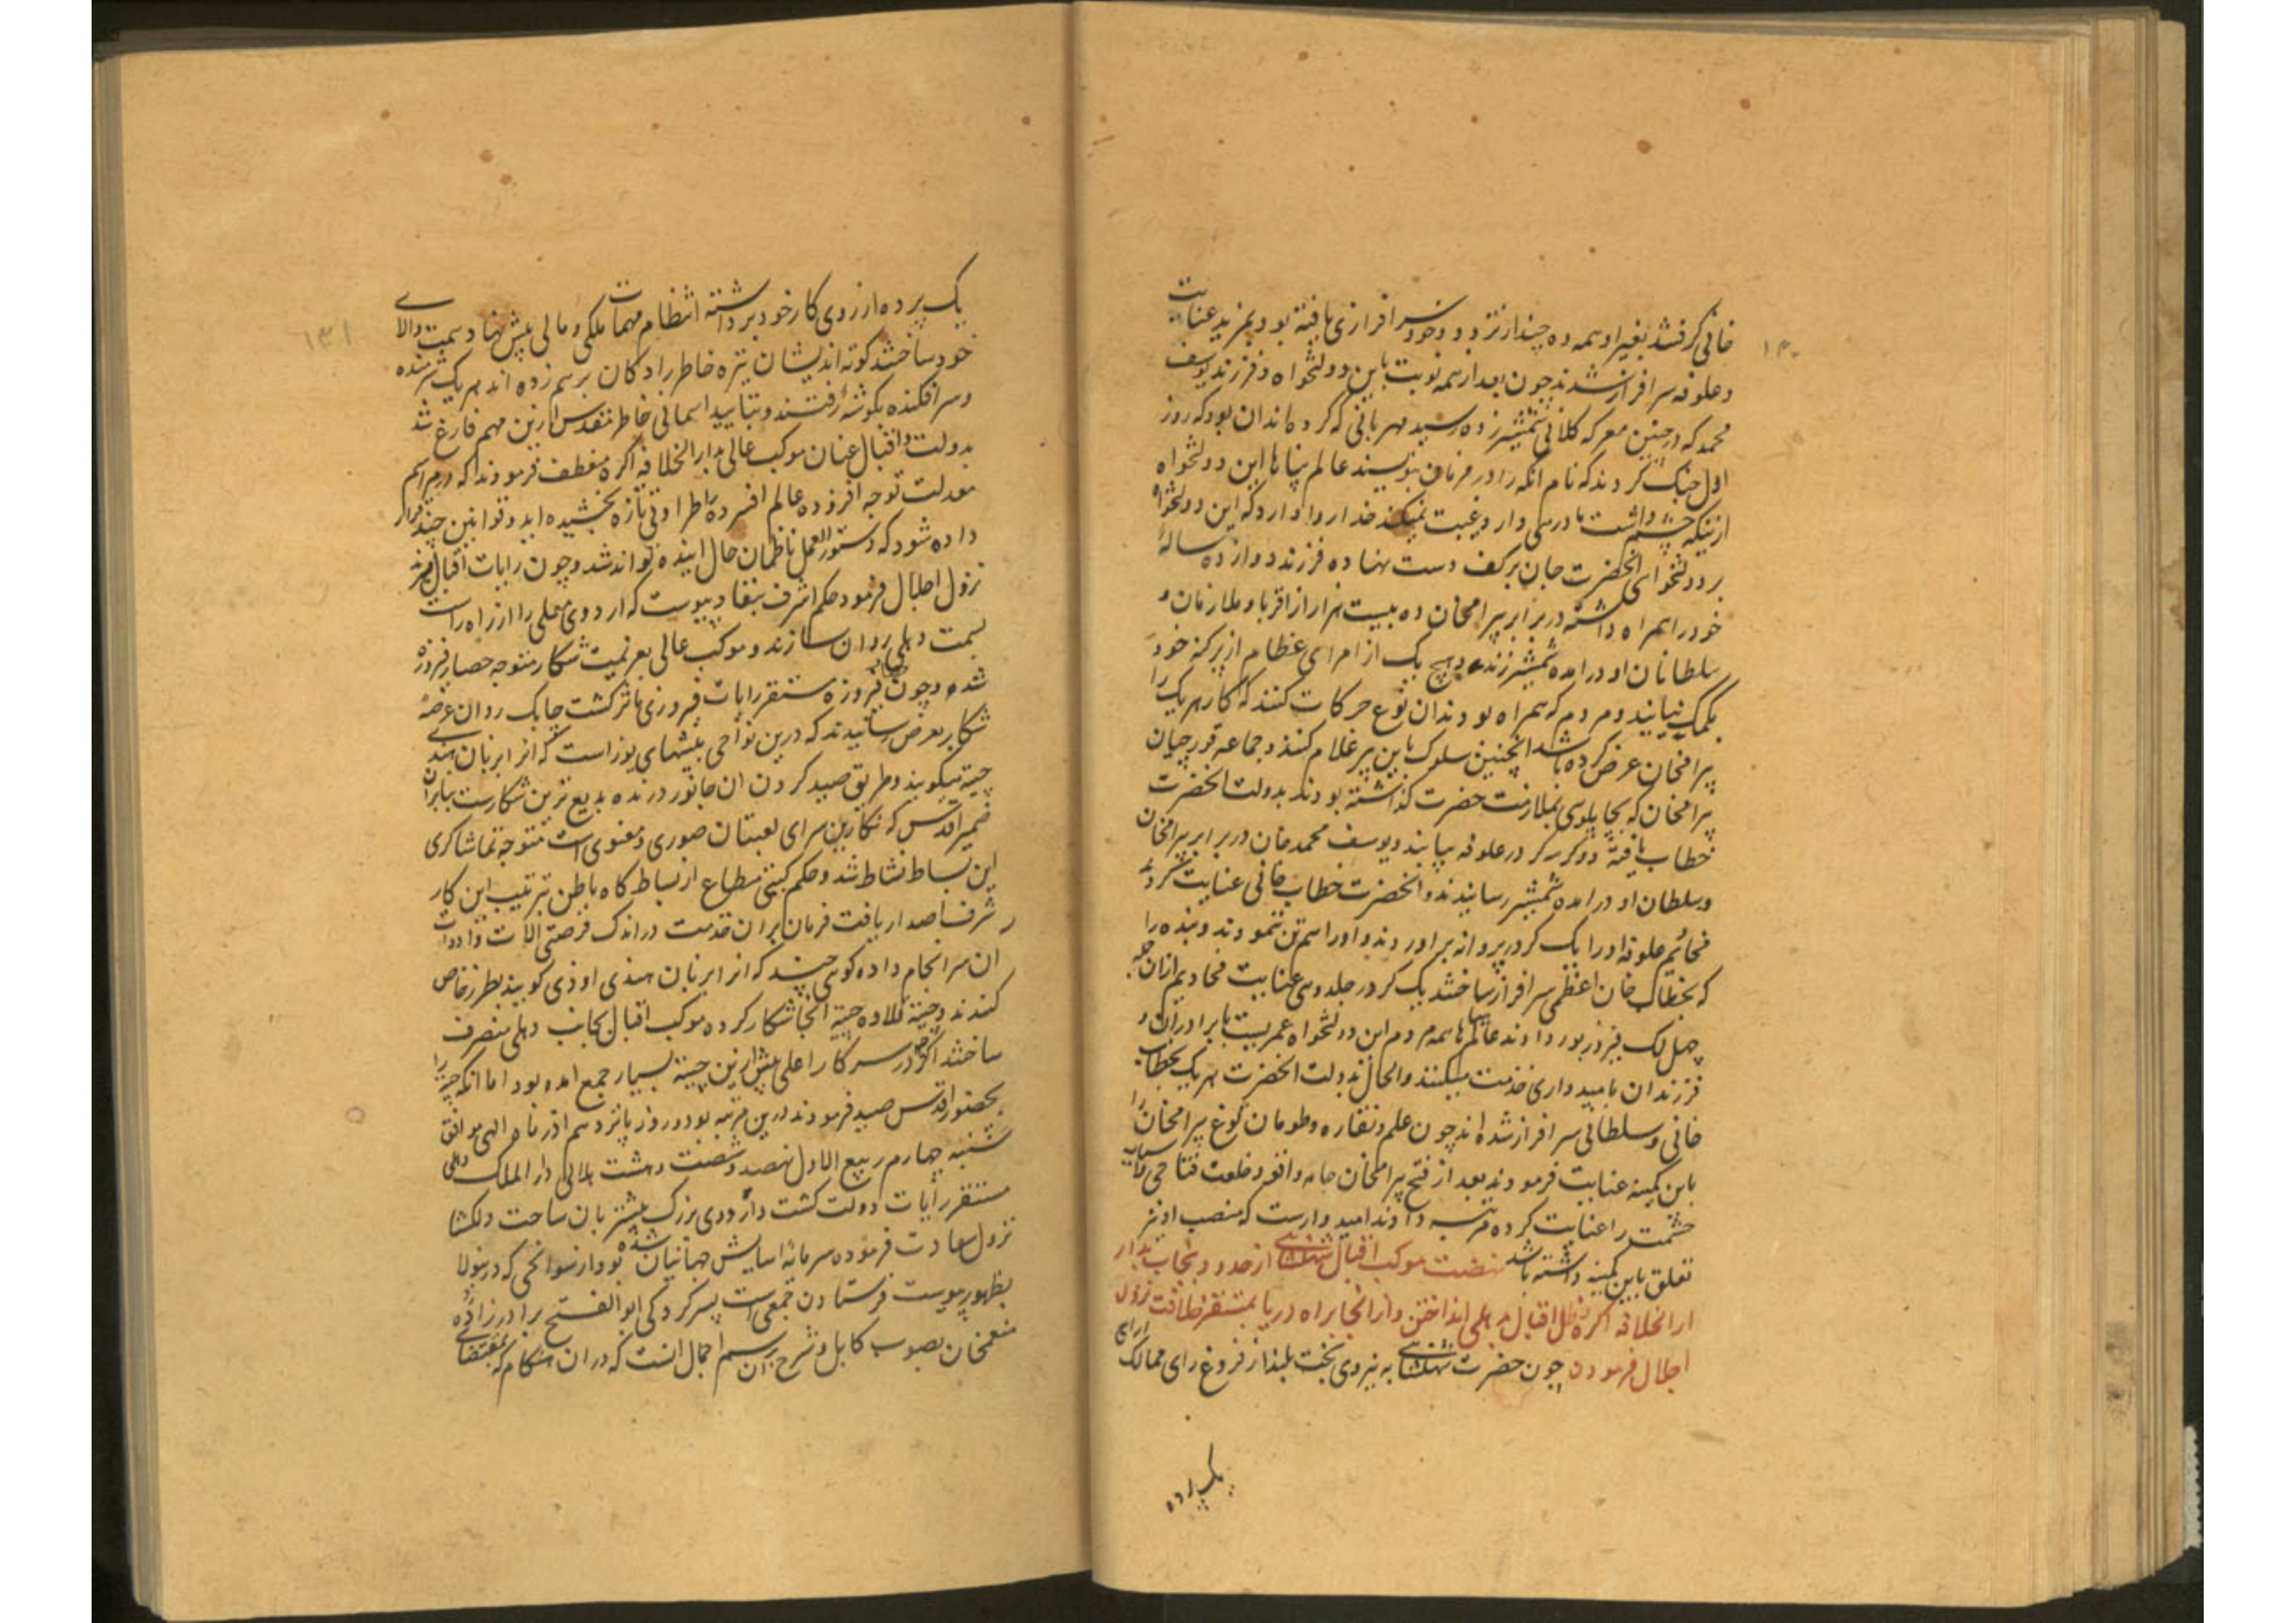 ۱۳۰
خانی گرفتند بغیر او همه ده چند از نزدود وخود سرافرازی یافته بود بمزید عنایت
وعلوفه سرافراز شدند چون بعد از همه نوبت باین دولتخواه و فرزند یوسف
محمد که در چنین معرکه کلانی شمشیر زده رسید مهربانی که کرده ماندان بود که روز
اول جنک کردند که نام انکه را در فرمان بنویسند عالم پناها این دولتخواه
از ینکه چشم داشت مادرمی دارد غیبت نمیکند خدا روا دارد که این دولتخواه
بر دولتخواهی انحضرت جان بر کف دست نهاده فرزند دوازده ساله
خود را همراه داشته در برابر پیرامخان ده بیست هزار از اقربا و ملازمان و
سلطانان او درامده شمشیر زنند و هیچ یک از امرای عظام از پرکنه خود
بکمک نیایند و مردم که همراه بودند ان نوع حرکات کنند که کار هر یک را
پیرامخان عرض کرده باشد انچنین سلوک باین پیر غلام کنند و جماعه قورچیان
پیرامخان که بجاپلوسی بملازمت حضرت گذاشته بودند بدولت انحضرت
خطاب یافته دو کرر کر در علوفه بیابند و یوسف محمد خان در برابر پیرامخان
و سلطان او درامده شمشیر رسانیدند و انحضرت خطاب خانی عنایت کردند
محایم علوفه او را یک کر در پروانه براوردند و او را سم تن ننمودند و بنده را
که بخطاب خان اعظمی سرافراز ساختند یک کر در جلدوی عنایت محادیم ازان جمله
چهل لک فیروزپور دادند عالم پناها همه مردم این دولتخواه عمریست با برادران و
فرزندان بامیدواری خدمت میکنند و الحال بدولت انحضرت هر یک بخطاب
خانی و سلطانی سرافراز شده اند چون علم و نقاره و طومان توغ پیرامخان را
باین کمینه عنایت فرمودند بعد از فتح پیرامخان جامه وافود خلعت فتاحی
حشمت را عنایت کرده مرتبه دادند امیدوارست که منصب او نیز
تعلق باین کمینه داشته باشد نهضت موکب اقبال شاهنشاهی از حدود پنجاب بدار
ار الخلافه اکره ظل اقبال بدهلی انداختن و از انجا براه دریا بمستقر خلافت نزول
اجلال فرمودن چون حضرت شاهنشاهی به نیروی بخت بلند از فروغ رای ممالک ارای
یک پرده
۱۳۱
یک پرده از روی کار خود برداشته انتظام مهمات ملکی و مالی پیش نهاد همت والای
خود ساختند کوته اندیشان تیره خاطر را دکان برهم زده اند هر یک شرمنده
و سر افکنده بگوشه رفتند و بتایید اسمانی خاطر مقدس از ین مهم فارغ شد
بدولت و اقبال عنان موکب عالی بدار الخلافه اکره منعطف فرمودند که در مراسم
معدلت توجه افزوده عالم افسرده را طراوتی تازه بخشیده اید و قوانین چند قرار
داده شود که دستور العمل ناظمان حال اینده تواند شد و چون رایات اقبال بسهرند
نزول اجلال فرمود حکم اشرف بنفاد پیوست که اردوی معلی را از راه راست
بسمت دهلی روان سازند و موکب عالی بعزیمت شکار متوجه حصار فیروزه
شده و چون حصار فیروزه مستقر رایات فیروزی ماثر کشت چابک روان عرصه
شکار بعرض رسانیدند که درین نواحی بیشهای یوز است که انرا بزبان هندی
چیته میکویند و طریق صید کردن ان جانور درنده بدیع ترین شکارست بنابران
ضمیر اقدس که نکارین سرای لعبتان صوری و معنوی است متوجه تماشاکری
این بساط نشاط شد و حکم کیتی مطاع از بساط کاه باطن بترتیب این کار
شرف اصدار یافت فرمان بران خدمت در اندک فرصتی الات و ادوات
ان سرانجام داده کوی چند که انرا بزبان هندی اودی کویند بطرز خاص
کندند و چیته قلاده چیته انجا شکار کرده موکب اقبال بجانب دهلی منصرف
ساختند اکرچه در سرکار اعلی پیش از ین چیته بسیار جمع امده بود اما انکه چیته را
بحضور اقدس صید فرمودند درین مرتبه بود و روز پانزدهم اذر ماه الهی موافق
شنبه چهارم ربیع الاول نهصد و شصت و هشت هلالی دار الملک دهلی
مستقر رایات دولت کشت و اردوی بزرک پیشتر بان ساحت دلکشا
نزول سعادت فرموده سرمایه اسایش جهانیان شده بود و از سوانحی که درینولا
بظهور پیوست فرستادن جمعی است بسرکردکی ابو الفتح برادرزاده
منعمخان بصوب کابل و شرح ان برسم اجمال انست که در ان هنکام که بمقتضای